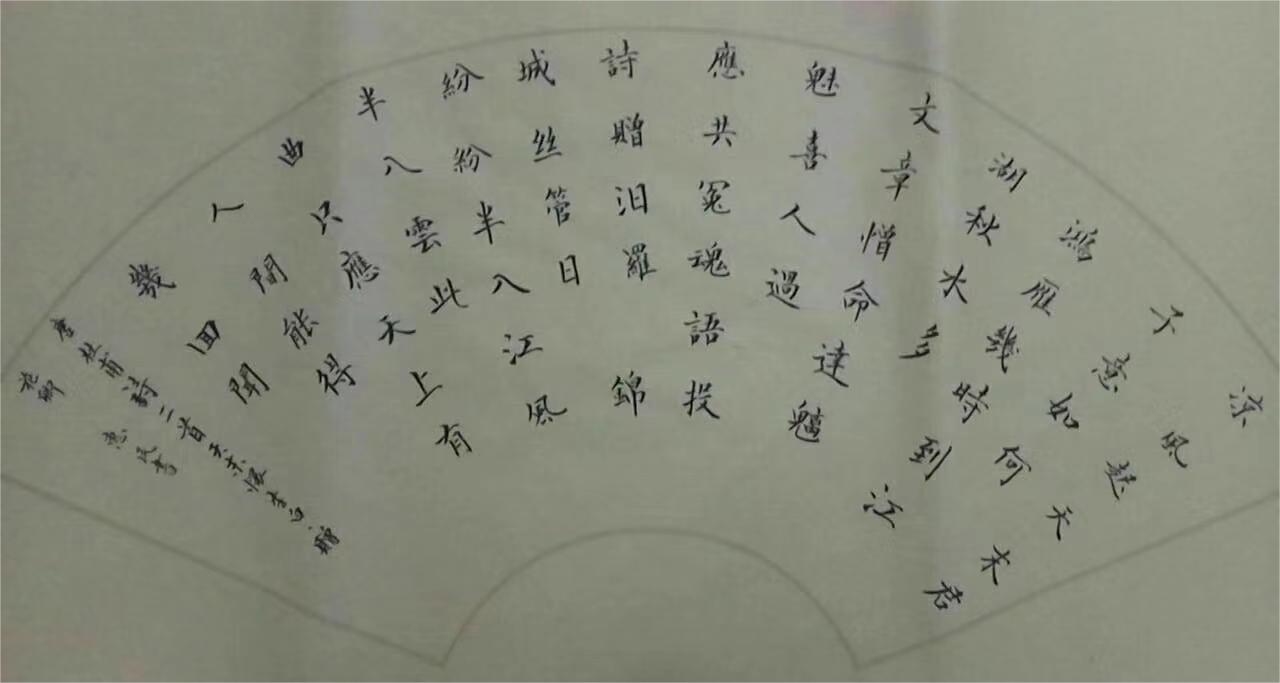 涼風起天末君
子意如何
鴻雁幾時到江
湖秋水多
文章憎命達魑
魅喜人過
應共冤魂語投
詩贈汨羅 錦
城丝管日
紛紛半入江風
半入雲此
曲只應天上有
人間能得
幾回聞
唐杜甫詩二首天末懷李白、贈
花卿
惠民書